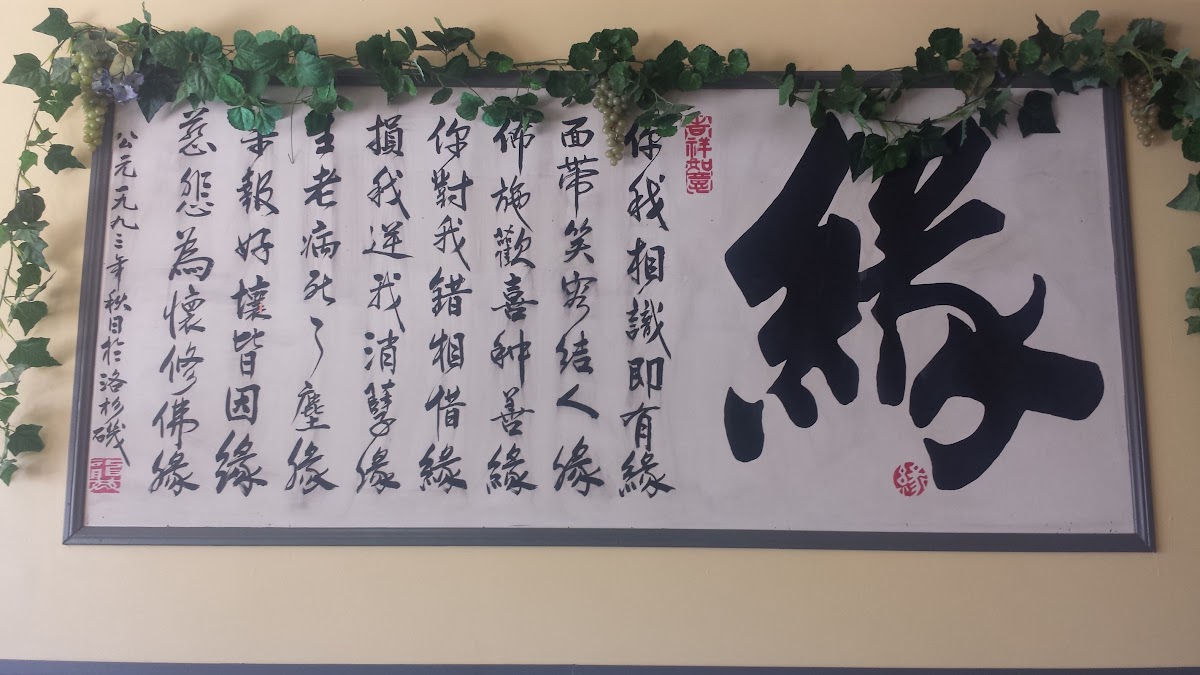 緣
吉祥如意
你我相識即有緣
面帶笑容結人緣
佈施歡喜種善緣
你對我錯相惜緣
損我逆我消孽緣
生老病死了塵緣
報好壞皆因緣
慈悲為懷修佛緣
公元一九九三年秋日於洛杉磯